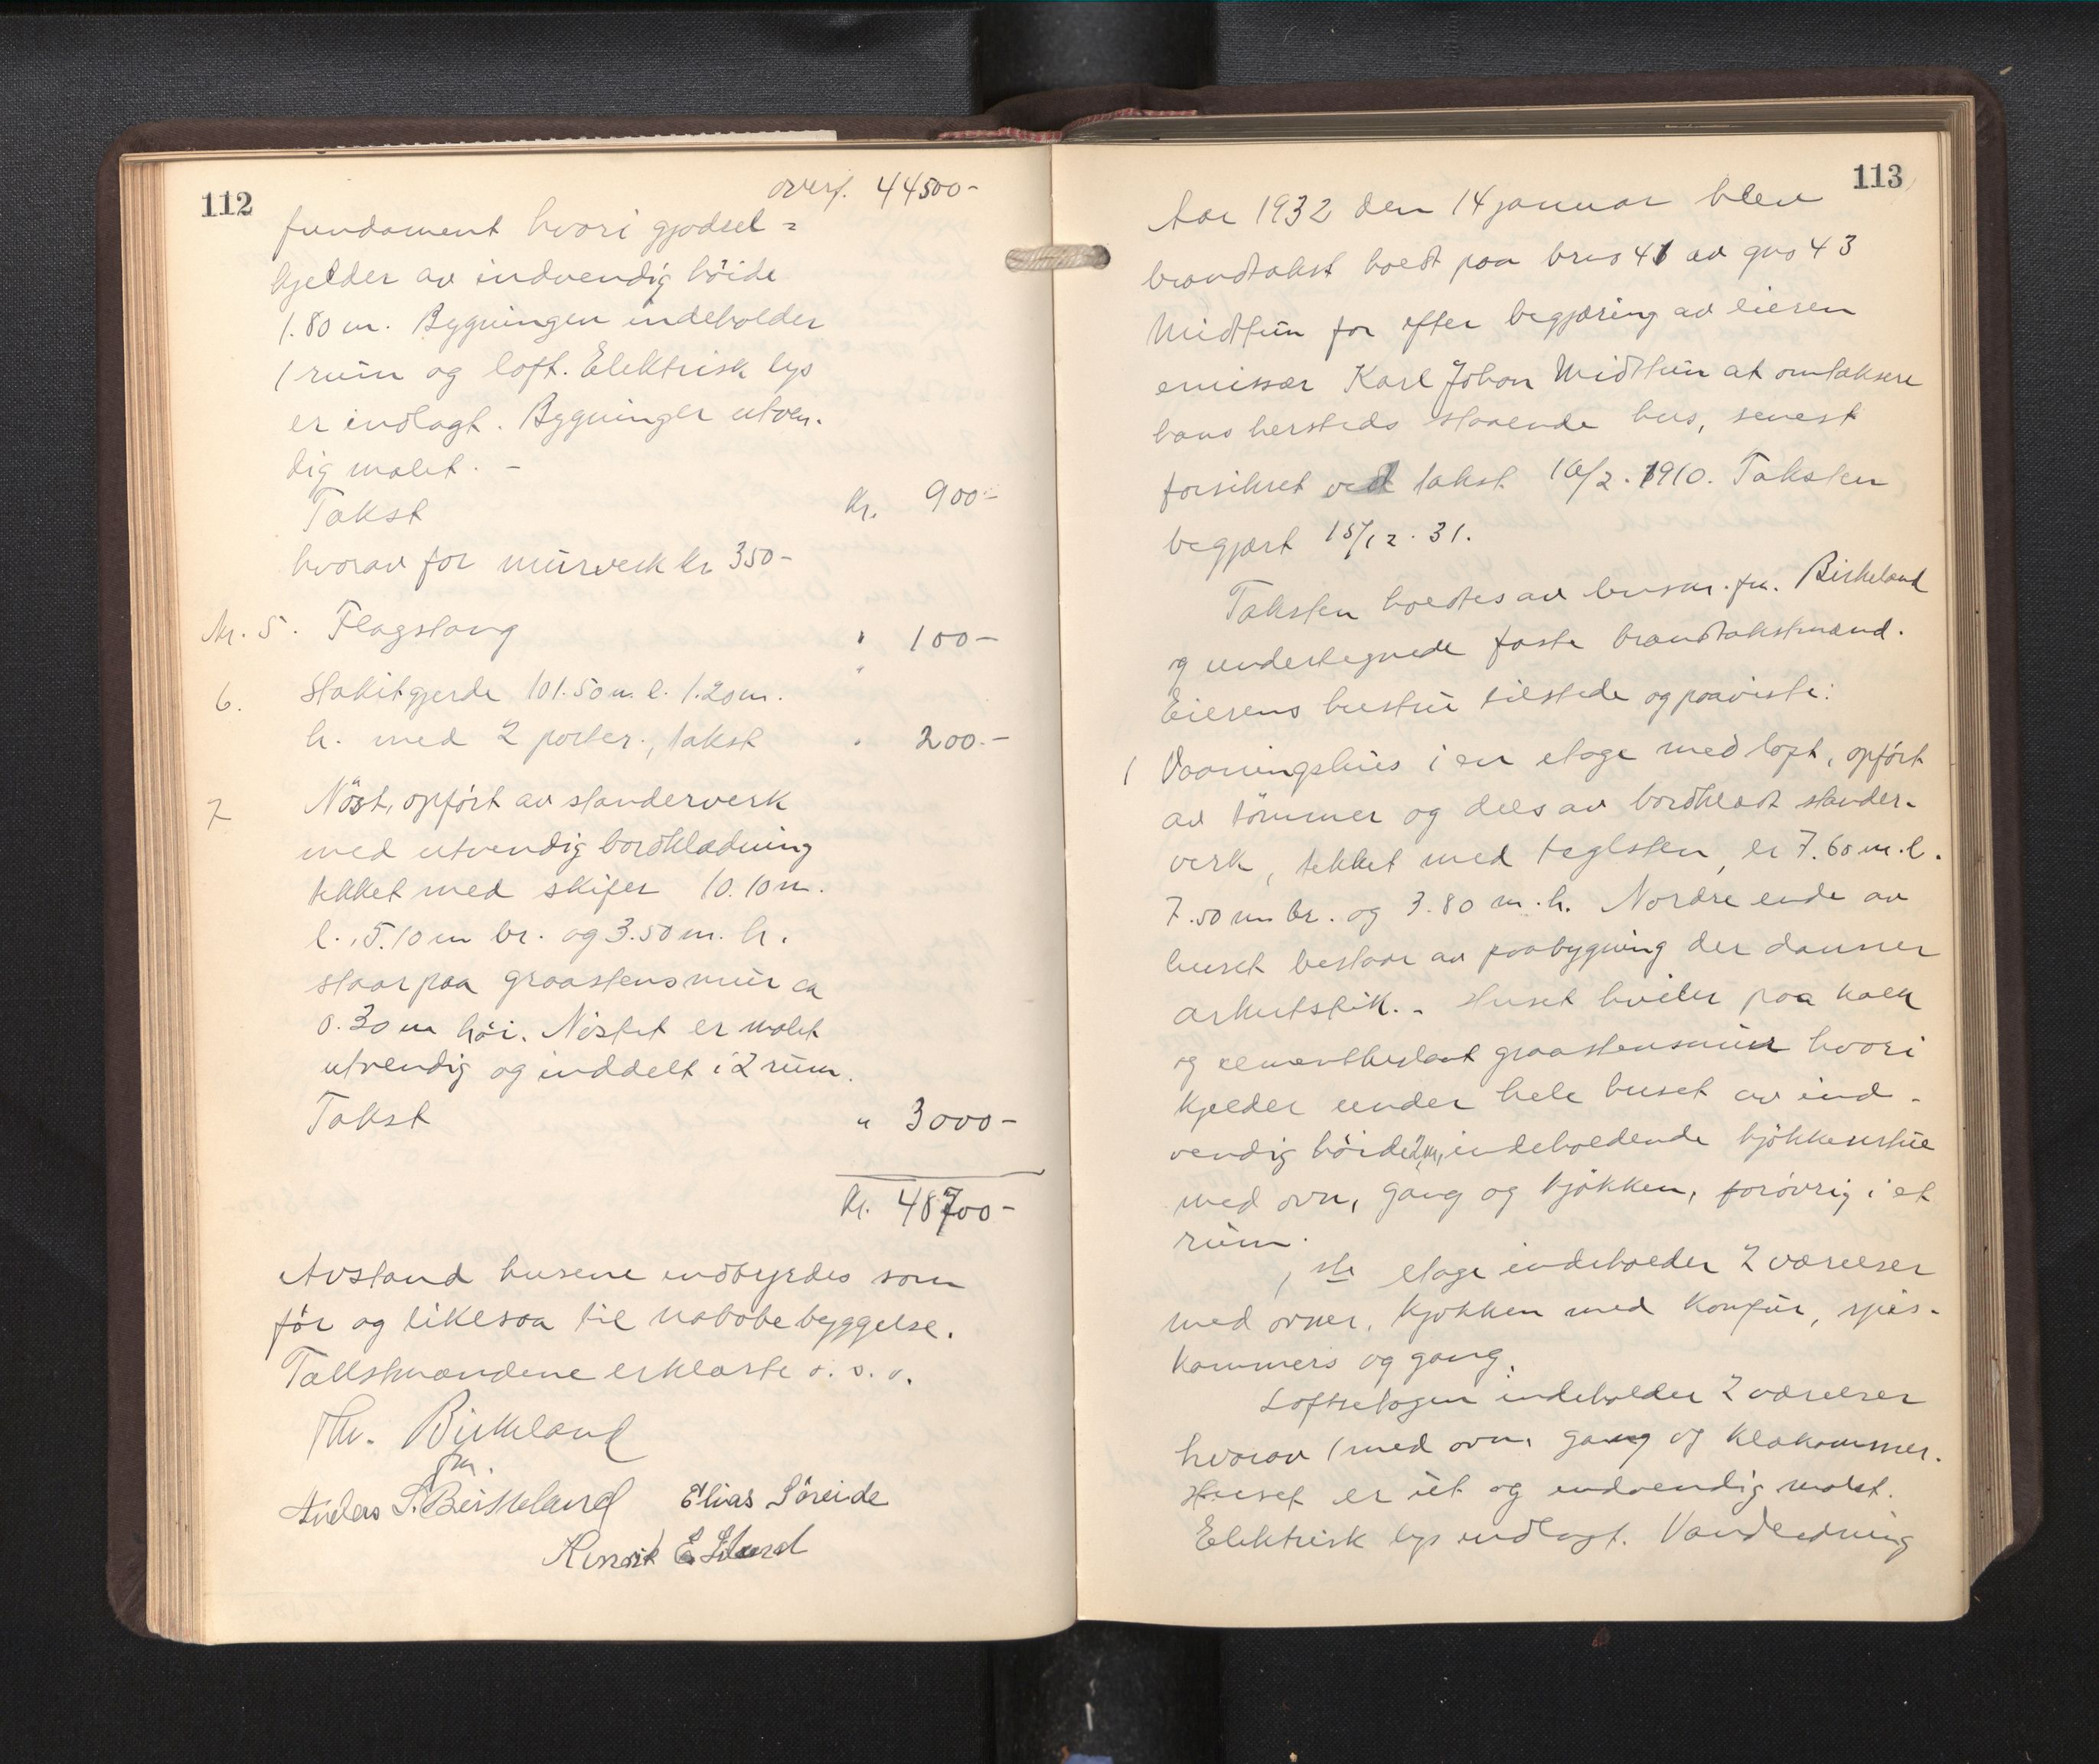 112
overf. 44500-
fundament hvori gjødsel=
kjelder av indvendig høide
1.80 m. Bygningen indeholder
1 rum og loft. Elektrisk lys
er indlagt. Bygninger utven.
dig malet. -
Takst kr. 900-
hvorav for murverk kr 350-
Nr. 5. Flagstang " 100-
6. Stakitgjerde 101.50 m. l. 1.20 m. "
h. med 2 porter., takst " 200.-
7 Nøst, opført av standerverk
med utvendig bordklædning
tekket med skifer 10.10 m.
l., 5.10 m br. og 3.50 m. h.
staar paa graastensmur ca
0.30 m høi. Nøstet er malet
utvendig og inddelt i 2 rum.
Takst " 3000-
kr. 48700-
Avstand husene indbyrdes som
før og likesaa til nabobebyggelse.
Takstmændene erklærte o. s. v.
Thv. Birkeland
fm.
Anders S. Birkeland Elias Søreide
Henrik E.
113
Aar 1932 den 14 januar blev
brandtakst holdt paa brno 41 av gno 43
Midttun for efter begjæring av eieren
emissær Karl Johan Midttun at omtaksere
hans hersteds staaende hus, senest
forsikret ved takst 16/2. 1910. Taksten
begjært 15/12. 31.
Taksten holdtes av lensm. fm. Birkeland
og undertegnede faste brandtakstmænd.
Eierens hustru tilstede og paaviste:
1 Vaaningshus i en etage med loft, opført
av tømmer og dels av bordklædt stander-
verk, tekket med teglsten, er 7.60 m. l.
7.50 m br. og 3.80 m. h. Nordre ende av
huset bestaar av paabygning der danner
arkutstik. - Huset hviler paa kalk
og cementbeslaat graastensmur hvori
kjelder under hele huset av ind-
vendig høide 2 m, indeholdende kjøkkenstue
med ovn, gang og kjøkken, forøvrig i et
rum.
1ste etage indeholder 2 værelser
med ovner, kjøkken med komfur, spis-
kammers og gang.
Loftsetagen indeholder 2 værelser
hvorav 1 med ovn, gang og klækammer.
Huset er ut og indvendig malet.
Elektrisk lys indlagt. Vandledning